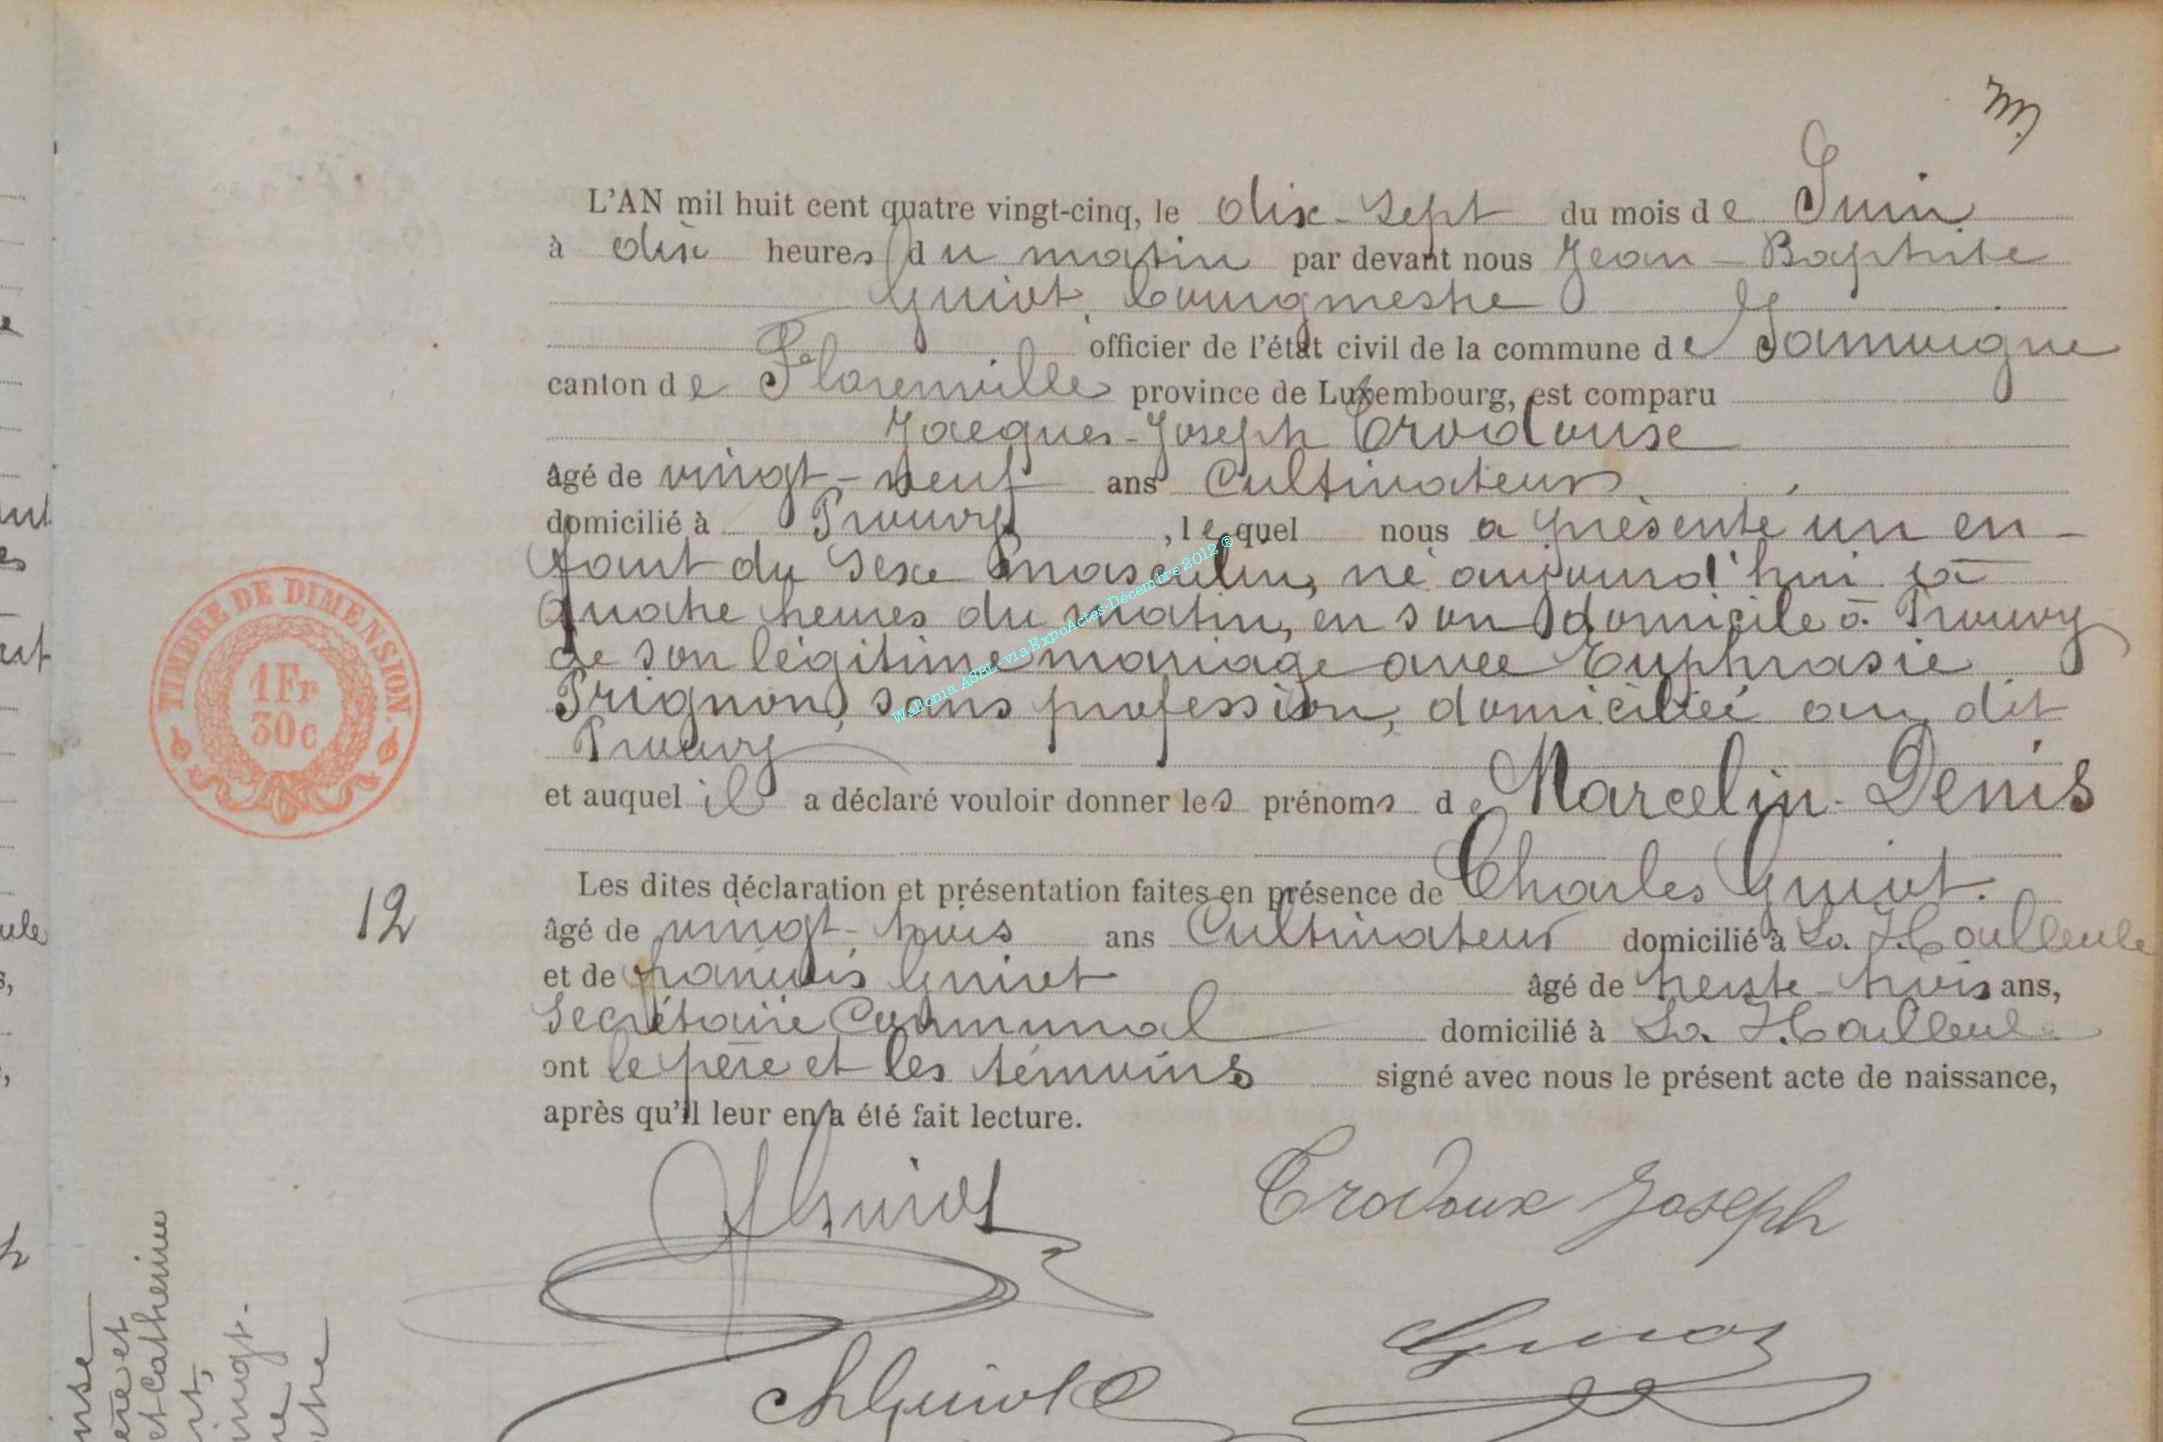 L'AN mil huit cent quatre vingt-cinq, le dix-sept du mois de Juin
à dix heures du matin par devant nous Jean-Baptiste
Guiot, bourgmestre
officier de l'état civil de la commune de Jamoigne
canton de Florenville province de Luxembourg, est comparu
Jacques-Joseph Crodoux
âgé de vingt-neuf ans Cultivateur
domicilié à Prouvy, lequel nous a présenté un en-
fant du sexe masculin, né aujourd'hui à
quatre heures du matin, en son domicile à Prouvy
de son légitime mariage avec Euphrasie
Prignon, sans profession, domiciliée au dit
Prouvy
et auquel il a déclaré vouloir donner les prénoms de Marcelin-Denis
Les dites déclaration et présentation faites en présence de Charles Guiot.
âgé de vingt-trois ans Cultivateur domicilié à La Hailleule
et de françois Guiot âgé de trente-trois ans,
Secrétaire Communal domicilié à La Hailleule
ont le père et les témoins signé avec nous le présent acte de naissance,
après qu'il leur en a été fait lecture.
Guiot
Crodoux Joseph
Ch Guiot
Guiot
TIMBRE DE DIMENSION
1Fr
30c
12
Wallonia ASBL via ExpoActes-Décembre 2012 ®
et Catherine
vingt-